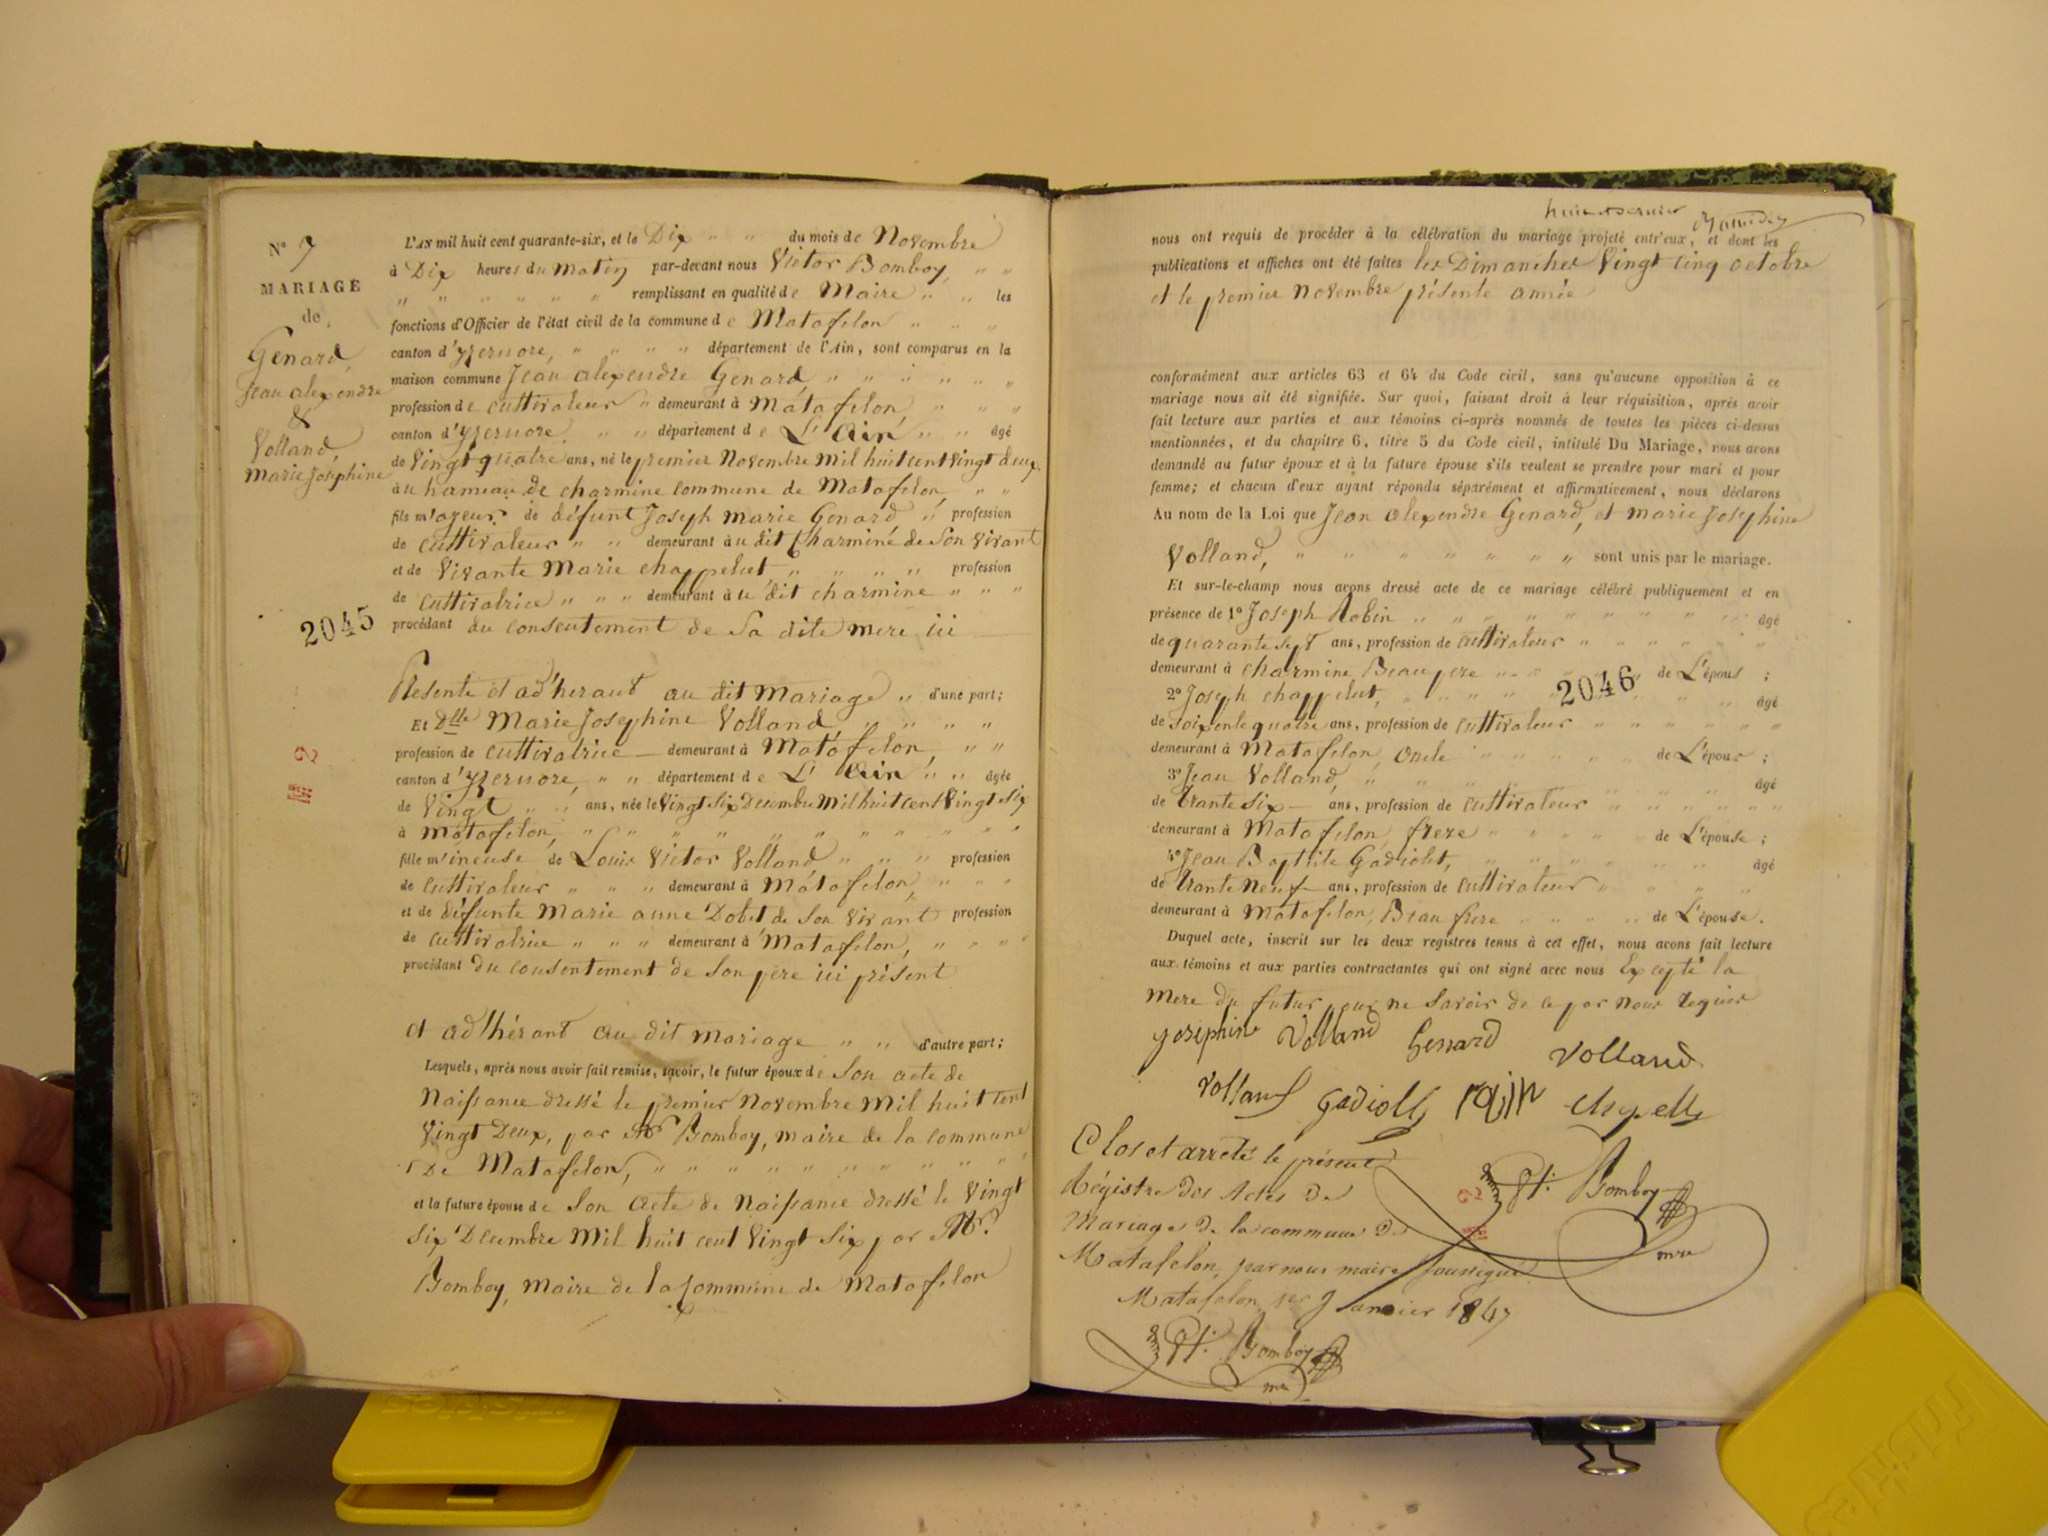 N° 7
MARIAGE
de
Genard,
Jean alexendre
&
Volland,
Marie Josephine
2045
L'AN mil huit cent quarante-six, et le Dix " " du mois de Novembre
à Dix heures du matin par-devant nous Victor Bomboy, " "
" " " " " " remplissant en qualité de Maire " " les
fonctions d'Officier de l'état civil de la commune de Matafelon " " "
canton d'yzernore, " " " " département de l'Ain, sont comparus en la
maison commune Jean alexendre Genard, " " " " " "
profession de cultivateur " demeurant à Matafelon, " " "
canton d'yzernore " " département de L'Ain " " âgé
de Vingt quatre ans, né le premier Novembre mil huit cent Vingt deux
au hameau de charmine commune de Matafelon, " "
fils majeur de défunt Joseph marie Genard " profession
de cultivateur " " demeurant au dit Charmine de Son Vivant
et de Vivante Marie chappelut " " " " profession
de cultivatrice " " " demeurant au dit charmine " " "
procédant du consentement de Sa dite mere ici
Présente et ad'herant au dit mariage " d'une part;
Et Dlle Marie Josephine Volland " " " "
profession de cultivatrice demeurant à Matafelon, " "
canton d'yzernore, " " département de L'Ain " " âgée
de Vingt " " ans, née le Vingt Six Decembre Mil huit cent Vingt Six
à Matafelon, " " " " " " " " " " "
fille mineuse de Louis Victor Volland " " " profession
de cultivateur " " " demeurant à Matafelon, " " "
et de défunte Marie anne Dobet de Son Vivant profession
de cultivatrice " " " demeurant à Matafelon, " " "
procédant du consentement de Son père ici présent
et adhérant au dit mariage " " d'autre part;
Lesquels, après nous avoir fait remise, savoir, le futur époux de Son acte de
Naissance dressé le premier Novembre Mil huit Cent
Vingt Deux, par Mr Bomboy, maire de la commune
De Matafelon, " " " " " " " " " "
et la future épouse de Son acte de Naissance dressé le Vingt
Six Decembre Mil huit cent Vingt Six par Mr.
Bomboy, Maire de la Commune de Matafelon
nous ont requis de procéder à la célébration du mariage projeté entr'eux, et dont les
publications et affiches ont été faites les Dimanches Vingt Cinq octobre
et le premier Novembre présente année
conformément aux articles 63 et 64 du Code civil, sans qu'aucune opposition à ce
mariage nous ait été signifiée. Sur quoi, faisant droit à leur réquisition, après avoir
fait lecture aux parties et aux témoins ci-après nommés de toutes les pièces ci-dessus
mentionnées, et du chapitre 6, titre 5 du Code civil, intitulé Du Mariage, nous avons
demandé au futur époux et à la future épouse s'ils veulent se prendre pour mari et pour
femme; et chacun d'eux ayant répondu séparément et affirmativement, nous déclarons
Au nom de la Loi que Jean alexendre Genard, et marie Josephine
Volland, " " " " " " " sont unis par le mariage.
Et sur-le-champ nous avons dressé acte de ce mariage célébré publiquement et en
présence de 1° Joseph Robin " " " " " " " " âgé
de quarante sept ans, profession de cultivateur " " " " "
demeurant à charmine Beau pere " " " de L'épous ;
2046
2° Joseph chappelut, " " " " " " " " âgé
de Soixente quatre ans, profession de cultivateur " " " " "
demeurant à Matafelon, oncle " " " " " de L'épour ;
3° Jean Volland, " " " " " " " " âgé
de trante Six ans, profession de cultivateur " " " " "
demeurant à Matafelon, frere " " " " de L'épouse ;
4° Jean Baptiste Gadiolet, " " " " " " âgé
de trante neuf ans, profession de cultivateur " " " "
demeurant à Matafelon, Beau frere " " " " de L'épouse.
Duquel acte, inscrit sur les deux registres tenus à cet effet, nous avons fait lecture
aux témoins et aux parties contractantes qui ont signé avec nous Excepté la
Mere du futur pour ne Savoir de ce par nous requise
josephine Volland Genard Volland
Volland
Clos et arrêté le présent
Régistre des Actes de
Mariages de la commune de
Matafelon, par nous maire soussigné.
Matafelon, le 1er Janvier 1847
Vt. Bomboy
mre
Vt. Bomboy
mre